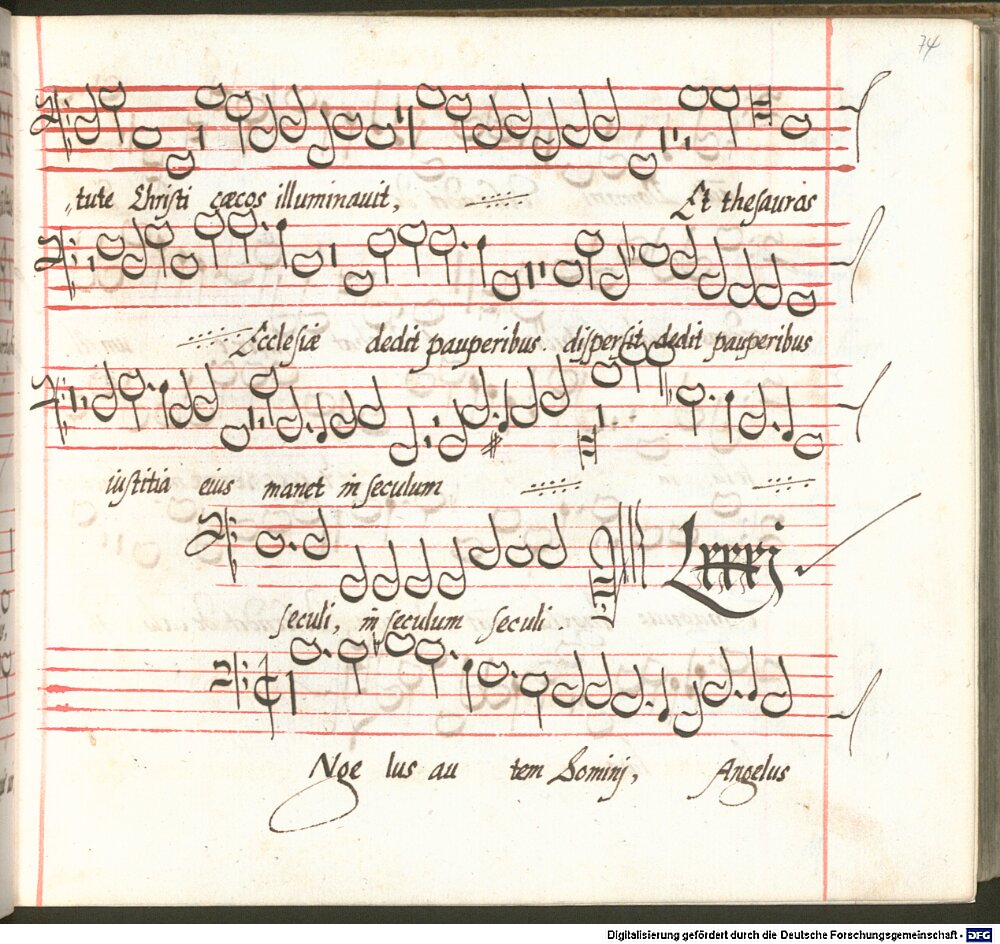 74
tute Christi cæcos illuminauit, Et thesauros
Ecclesiæ dedit pauperibus dispersit dedit pauperibus
iustitia eius manet in seculum
Lxxxj.
seculi, in seculum seculi.
Nge lus au tem Dominj, Angelus
Digitalisierung gefördert durch die Deutsche Forschungsgemeinschaft - DFG